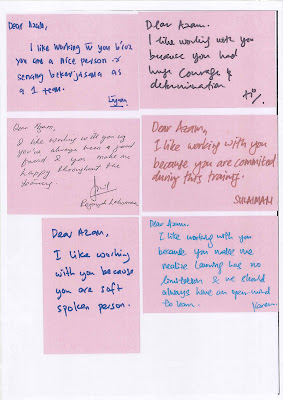 Dear Azam,
I like working w you b'coz
you are a nice person &
senang bekerjasama as
a 1 team.
Dear Azam.
I like working with you
because you had
huge courage &
determination.
Dear Azam,
I like working with you cos
you've always been a good
friend & you make me
happy throughout the
training.
Dear Azam,
I like working with you
because you are commited
during this training.
SULAIMAN
Dear Azam,
I like working
with you because
you are soft
spoken person.
Dear Azam.
I like working with you
because you make me
realise learning has no
limitation & we should
always have an open mind
to learn.